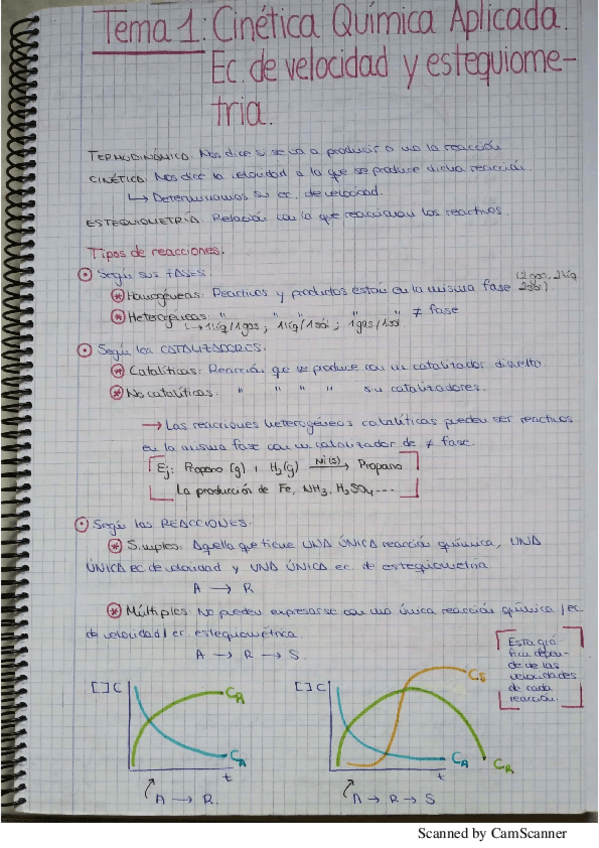 Tema 1: Cinética Química Aplicada.
Ec. de velocidad y estequiome-
tria.
TERMODINÁMICA: Nos dice si se va a producir o no la reacción
CINÉTICA: Nos dice la velocidad a la que se produce dicha reacción.
↳ Determinamos su ec. de velocidad.
ESTEQUIOMETRÍA: Relación con la que reaccionan los reactivos.
Tipos de reacciones.
Según sus FASES.
Homogéneas: Reactivos y productos están en la misma fase (2 gas, 2 líq
2 sól)
Heterogéneas: " " " " ≠ fase
↳ 1 líq/1 gas ; 1 líq/1 sól ; 1 gas/1 sól
Según los CATALIZADORES.
Catalíticas: Reacción que se produce con un catalizador disuelto.
No catalíticas: " " " " sin catalizadores.
→ Las reacciones heterogéneas catalíticas pueden ser reactivos
en la misma fase con un catalizador de ≠ fase.
Ej: Propano (g) + H₂(g) Ni(s)→ Propano
La producción de Fe, NH₃, H₂SO₄...
Según las REACCIONES.
Simples: Aquella que tiene UNA ÚNICA reacción química, UNA
ÚNICA ec de velocidad y UNA ÚNICA ec. de estequiometría
A → R
Múltiples: No pueden expresarse con una única reacción química / ec.
de velocidad / ec. estequiométrica.
A → R → S.
Esta grá-
fica depen-
de de las
velocidades
de cada
reacción.
[ ] C
CR
CA
t
A → R.
[ ] C
CS
CA
CR
t
A → R → S
Scanned by CamScanner